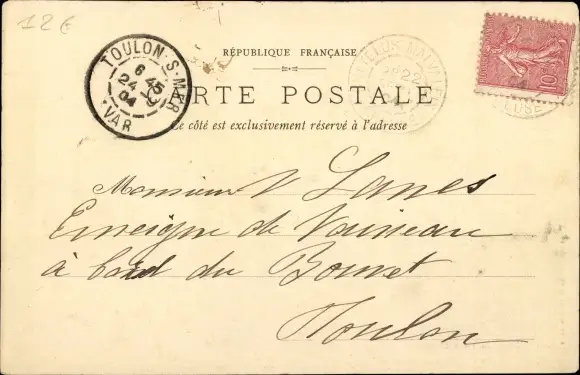 12 €
TOULON-S-MER
6 45
24
04
VAR
RÉPUBLIQUE FRANÇAISE
CARTE POSTALE
Ce côté est exclusivement réservé à l'adresse
22
10
Monsieur V Lanes
Enseigne de Vaisseau
à bord du
Toulon